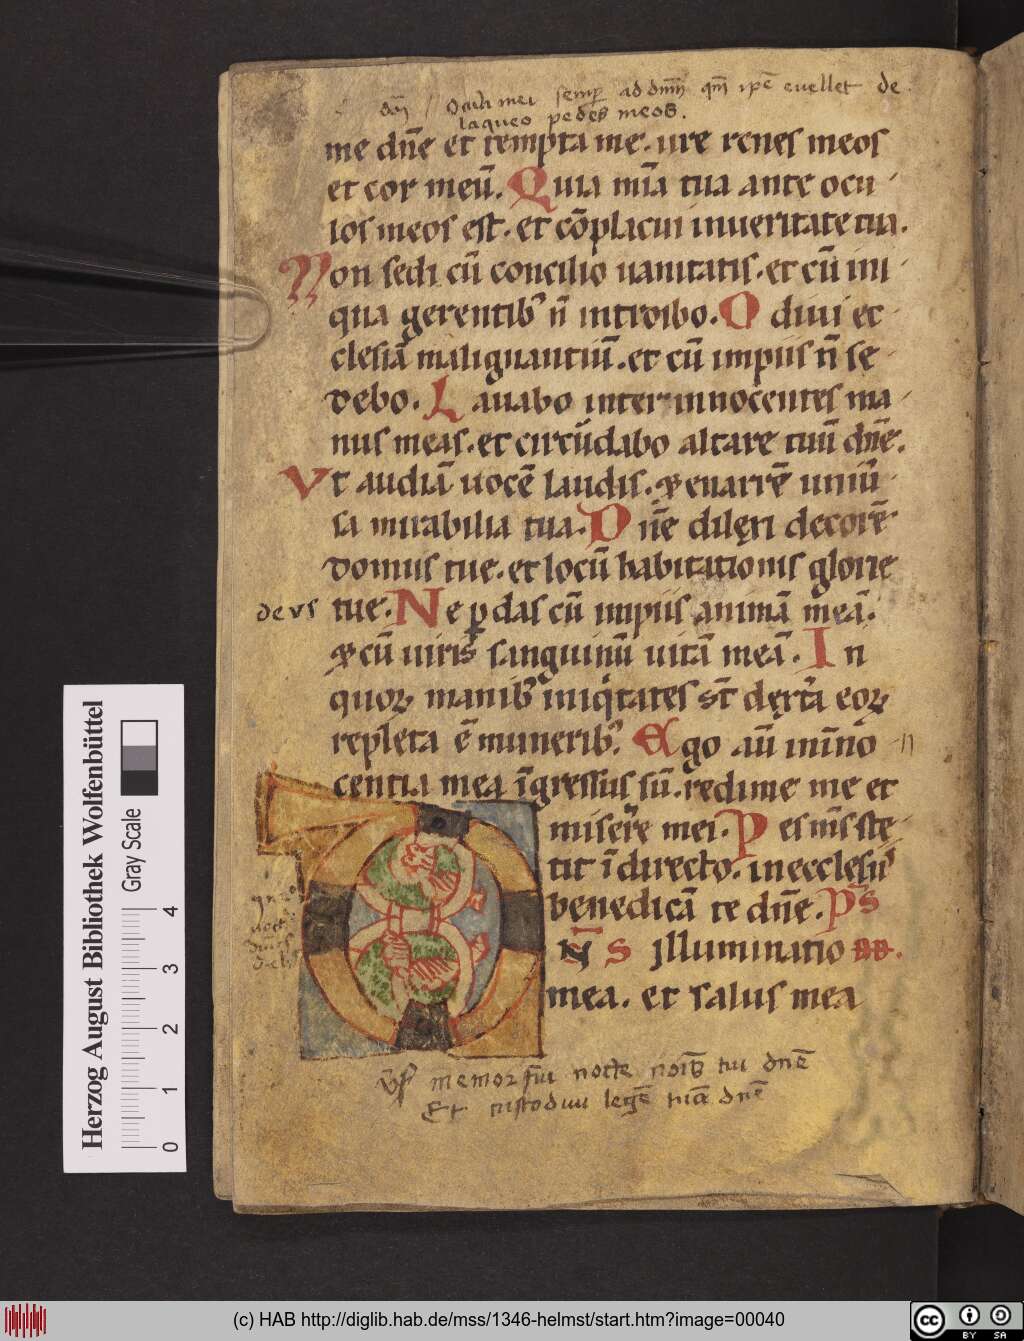 añ / Oculi mei semp̄ ad dñm qm̄ ip̄e euellet de
laqueo pedes meos.
me dñe et tempta me. ure renes meos
et cor meū. Quia mīa tua ante ocu
los meos est. et cōplacui inueritate tua.
Non sedi cū concilio uanitatis. et cū ini
qua gerentib' n̄ introibo. Odiui ec
clesiā malignantiū. et cū impiis n̄ se
debo. Lauabo inter innocentes ma
nus meas. et circūdabo altare tuū dñe.
Vt audiā uocē laudis. & enarrē uniū
sa mirabilia tua. Dñe dilęxi decorē
domus tue. et locū habitationis glorie
deus tue. Ne pdas cū impiis animā meā.
& cū uiris sanguinū uitā meā. In
quoꝝ manib' iniq̇tates sr̄t dęxt̄a eoꝝ
repleta ē munerib'. Ego aū in īno n
centia mea īgressus sū. redime me et
miser̄e mei. Pes m̄s ste
tit ī directo. in ecclesiis
benedicā te dñe. P̄S
DN̄S jlluminatio
mea. et salus mea
v̄s memor fui nocte nois̄ tui dnē
Et custodiui legē tuā dnē
Herzog August Bibliothek Wolfenbüttel
Gray Scale
0 1 2 3 4
(c) HAB http://diglib.hab.de/mss/1346-helmst/start.htm?image=00040
cc BY SA